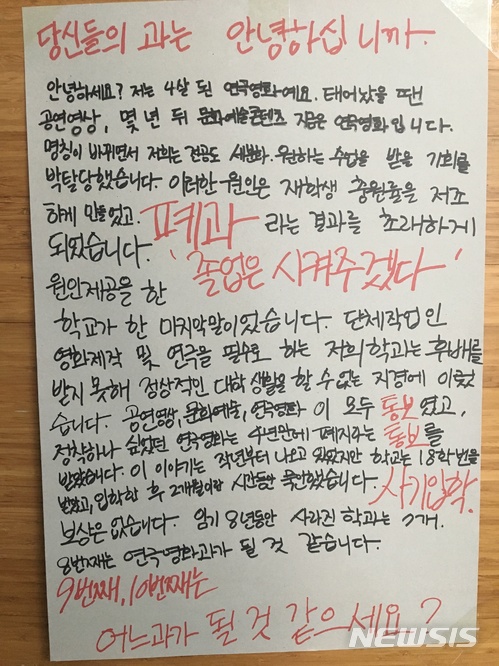 당신들의 과는 안녕하십니까.
안녕하세요? 저는 4살 된 연극영화예요. 태어났을 땐
공연영상, 몇 년 뒤 문화예술콘텐츠 지금은 연극영화입니다.
명칭이 바뀌면서 저희는 전공도 세분화. 원하는 수업을 받을 기회를
박탈당했습니다. 이러한 원인은 재학생 충원률을 저조
하게 만들었고. 폐과 라는 결과를 초래하게
되었습니다.
'졸업은 시켜주겠다'
원인제공을 한
학교가 한 마지막말이었습니다. 단체작업인
영화제작 및 연극을 필수로 하는 저희학과는 후배를
받지 못해 정상적인 대학 생활을 할 수 없는 지경에 이르렀
습니다. 공연영상, 문화예술, 연극영화 이 모두 통보였고,
정착하나 싶었던 연극영화는 4년만에 폐지라는 통보를
받았습니다. 이 이야기는 작년부터 나오고 있었지만 학교는 18학번을
받았고 입학한 후 2개월이란 시간동안 묵인했습니다. 사기입학.
보상은 없습니다. 임기 8년동안 사라진 학과는 7개.
8번째는 연극영화과가 될 것 같습니다.
9번째, 10번째는
어느과가 될 것 같으세요?
NEWSIS